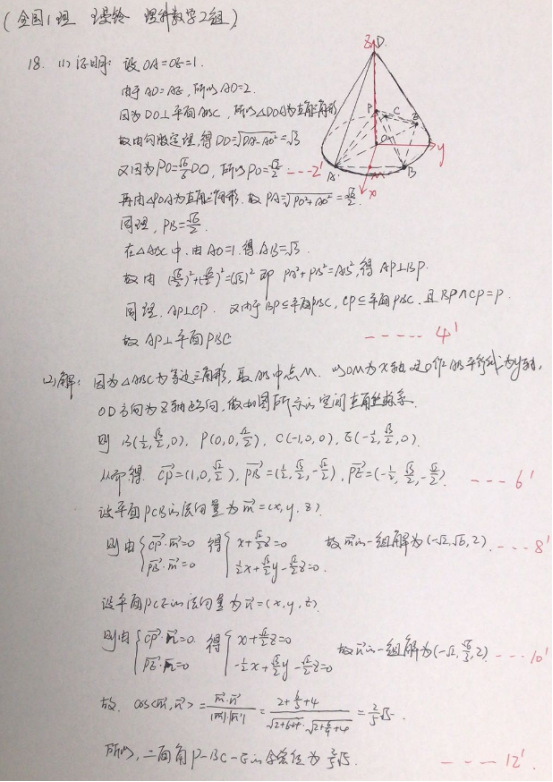 (全国1理 理数 理科数学2组)
18. (1)证明: 设OA=OE=1.
由于AD=AE, 所以AD=2.
因为DO⊥平面ABC, 所以△DOA为直角三角形
故由勾股定理, 得DO=√(DA²-AO²)=√3
又因为PO=√6/6DO, 所以PO=√2/2 ---2'
再由△POA为直角三角形, 故PA=√(PO²+AO²)=√6/2.
同理, PB=√6/2.
在△ABC中, 由AO=1. 得AB=√3.
故由 (√6/2)²+(√6/2)²=(√3)² 即 PA²+PB²=AB², 得AP⊥BP.
同理, AP⊥CP. 又由于BP⊆平面PBC, CP⊆平面PBC, 且BP∩CP=P.
故AP⊥平面PBC ----- 4'
(2)解: 因为△ABC为等边三角形, 取AB中点M. 以OM为x轴, 过O作AB平行线为y轴,
OD方向为z轴正向, 做如图所示的空间直角坐标系.
则 B(1/2,√3/2,0), P(0,0,√2/2), C(-1,0,0), E(-1/2,√3/2,0).
从而得 CP=(1,0,√2/2), PB=(1/2,√3/2,-√2/2), PE=(-1/2,√3/2,-√2/2). --- 6'
设平面PCB的法向量为m=(x,y,z)
则由{CP·m=0 PB·m=0 得{x+√2/2z=0 1/2x+√3/2y-√2/2z=0. 故m的一组解为(-√2,√6,2). --- 8'
设平面PCE的法向量为n=(x,y,z).
则由{CP·n=0 PE·n=0 得{x+√2/2z=0 -1/2x+√3/2y-√2/2z=0 故n的一组解为(-√2,√6/3,2) --- 10'
故. cos<m,n>=m·n/|m||n|=(2+6/3+4)/(√(2+6+4)·√(2+6/9+4))=2/5√5.
所以, 二面角P-BC-E的余弦值为2/5√5. --- 12'
z
D
P
C
E
O
y
A
M
B
x